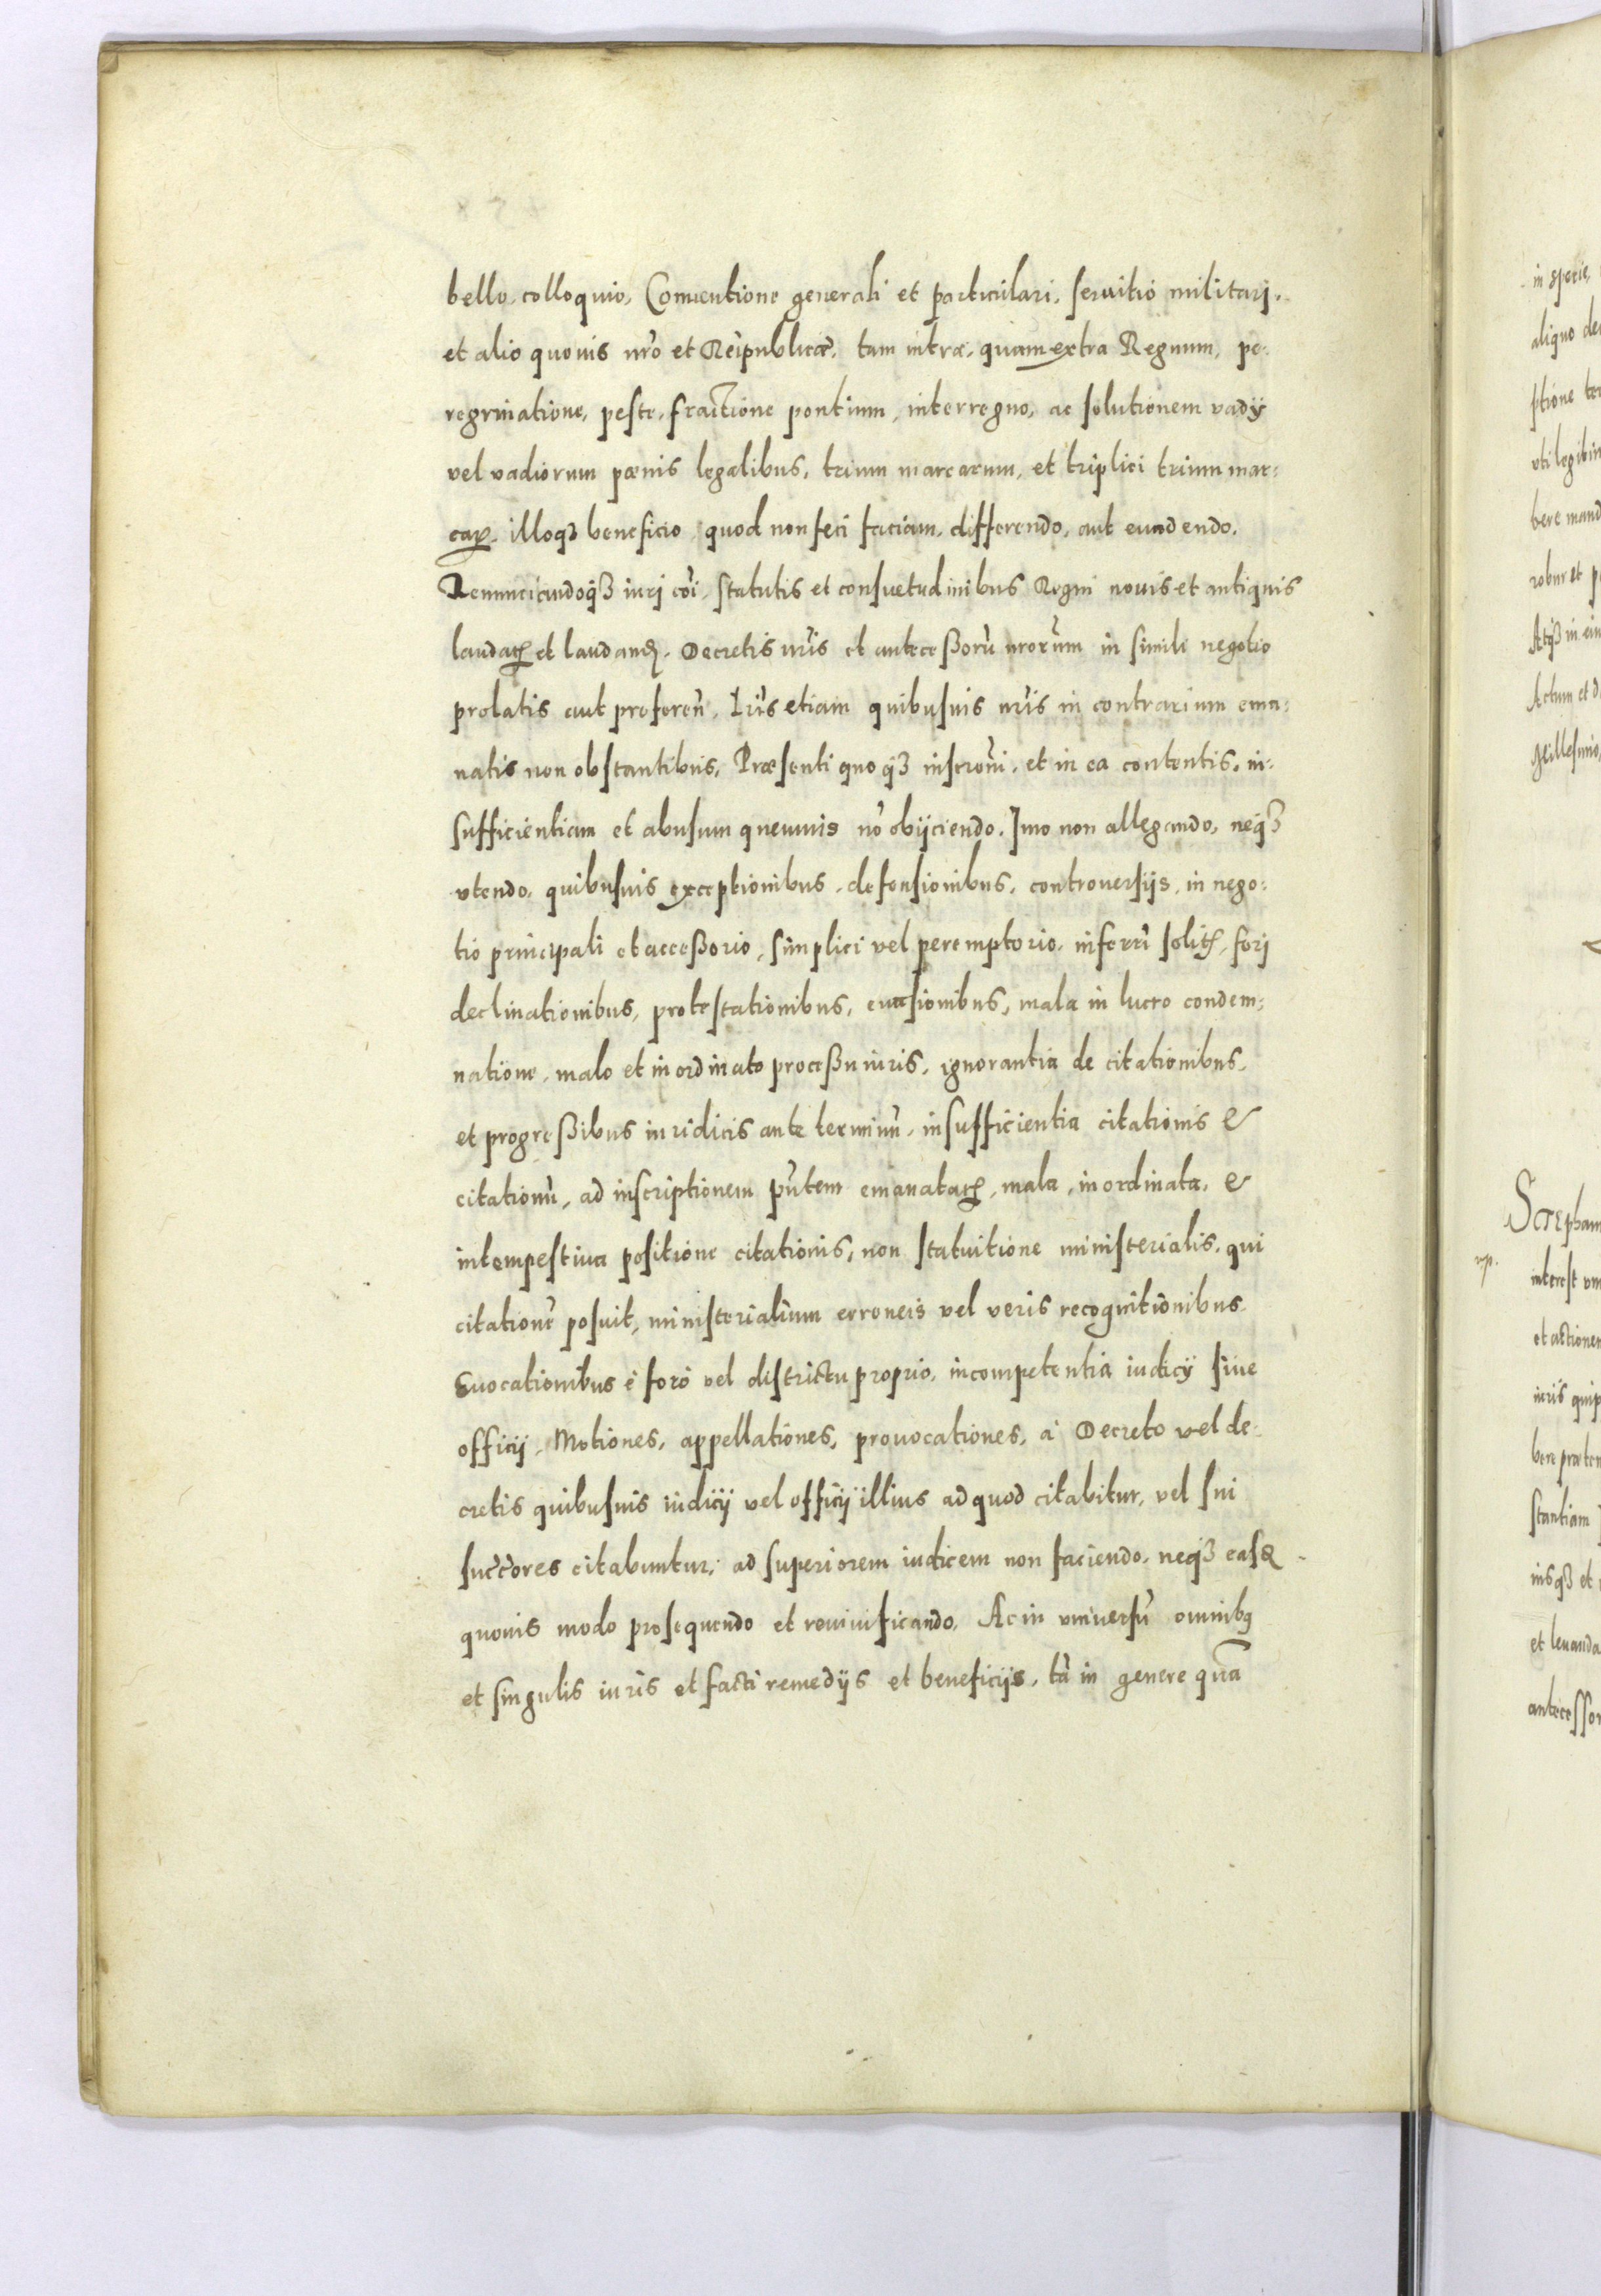 bello, colloquio, Conuentione generali et particulari, seruitio militari,
et alio quouis nr̃o et Reipublicæ, tam intra, quam extra Regnum, pe:
regrinatione, peste, fractione pontium, interregno, ac solutionem vadÿ
vel vadiorum pœnis legalibus, trium marcarum, et triplici trium mar:
caꝝ. illoqꝫ beneficio, quod non feci faciam, differendo, aut euadendo.
Renunciandoqꝫ iurj cõi, statutis et consuetudinibus Regni nouis et antiquis
laudatꝭ et laudandꝭ. Decretis nr̃is et antecessorũ nr̃orum in simili negotio
prolatis aut proferen̄, Lr̃is etiam quibusuis nr̃is in contrarium ema:
natis non obstantibus, Præsenti quoqꝫ inscrōni, et in ea contentis, in:
sufficientiam et abusum queuuis nō obÿciendo. Imo non allegando, neqꝫ
vtendo, quibusuis exceptionibus, defensionibus, controuersÿs, in nego:
tio principali et accessorio, simplici vel peremptorio, inferri solitꝭ, forj
declinationibus, protestationibus, euasionibus, mala in lucro condem:
natione, malo et inordinato processu iuris, ignorantia de citationibus,
et progressibus iuridicis ante terminũ, insufficientia citationis &
citationũ, ad inscriptionem pñtem emanatarꝭ, mala, inordinata, &
intempestiua positione citationis, non statuitione ministerialis, qui
citationẽ posuit, ministerialium erroneis vel veris recognitionibus
Euocationibus è foro vel districtu proprio, incompetentia iudicÿ siue
officÿ, Motiones, appellationes, prouocationes, à Decreto vel de:
cretis quibusuis iudicÿ vel officÿ illius ad quod citabitur, vel sui
succ̃ores citabuntur, ad superiorem iudicem non faciendo, neqꝫ easꝗ
quouis modo prosequendo et reuiuificando, Ac in vniuersũ omnibꝰ
et singulis iuris et facti remedÿs et beneficÿs, tã in genere quã
in specie,
aliquo de
ptione te
vti legibus
bere mand
robur et p
Atqꝫ in
Actum et d
Millesimo,
Stephan
interest
et actionem
iuris quip
bere præten
stantiam
iusqꝫ et
et leuanda
antecessor